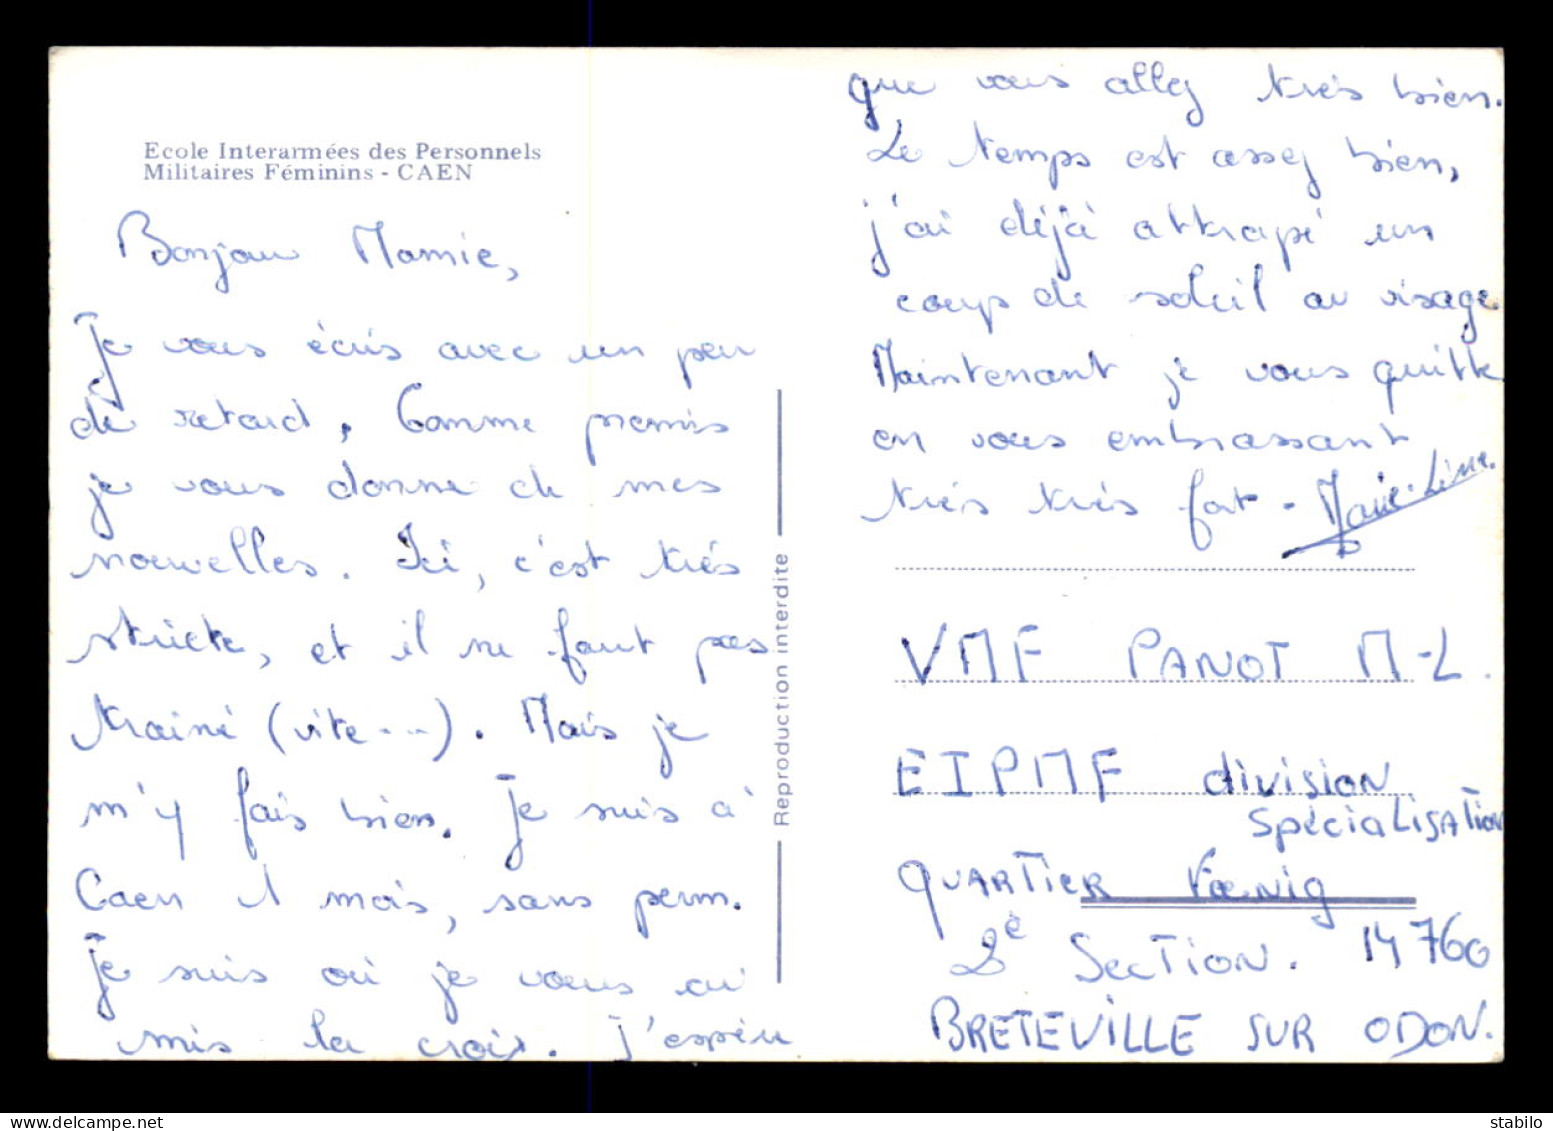 Ecole Interarmées des Personnels
Militaires Féminins - CAEN
Bonjour Mamie,
Je vous écris avec un peu
de retard. Comme promis
je vous donne de mes
nouvelles. Ici, c'est très
stricte, et il ne faut pas
trainé (vite---). Mais je
m'y fais bien. Je suis à
Caen 1 mois, sans perm.
Je suis où je vous ai
mis la croix. J'espère
Reproduction interdite
que vous allez très bien.
Le temps est assez bien,
j'ai déjà attrapé un
coup de soleil au visage
Maintenant je vous quitte
en vous embrassant
très très fort - Marie-Line.
VMF PANOT M-L.
EIPMF division
SPéciaLiSATion
QUARTIER Kœnig
2è SecTION. 14760
BRETEVILLE SUR ODON.
www.delcampe.net
stabilo